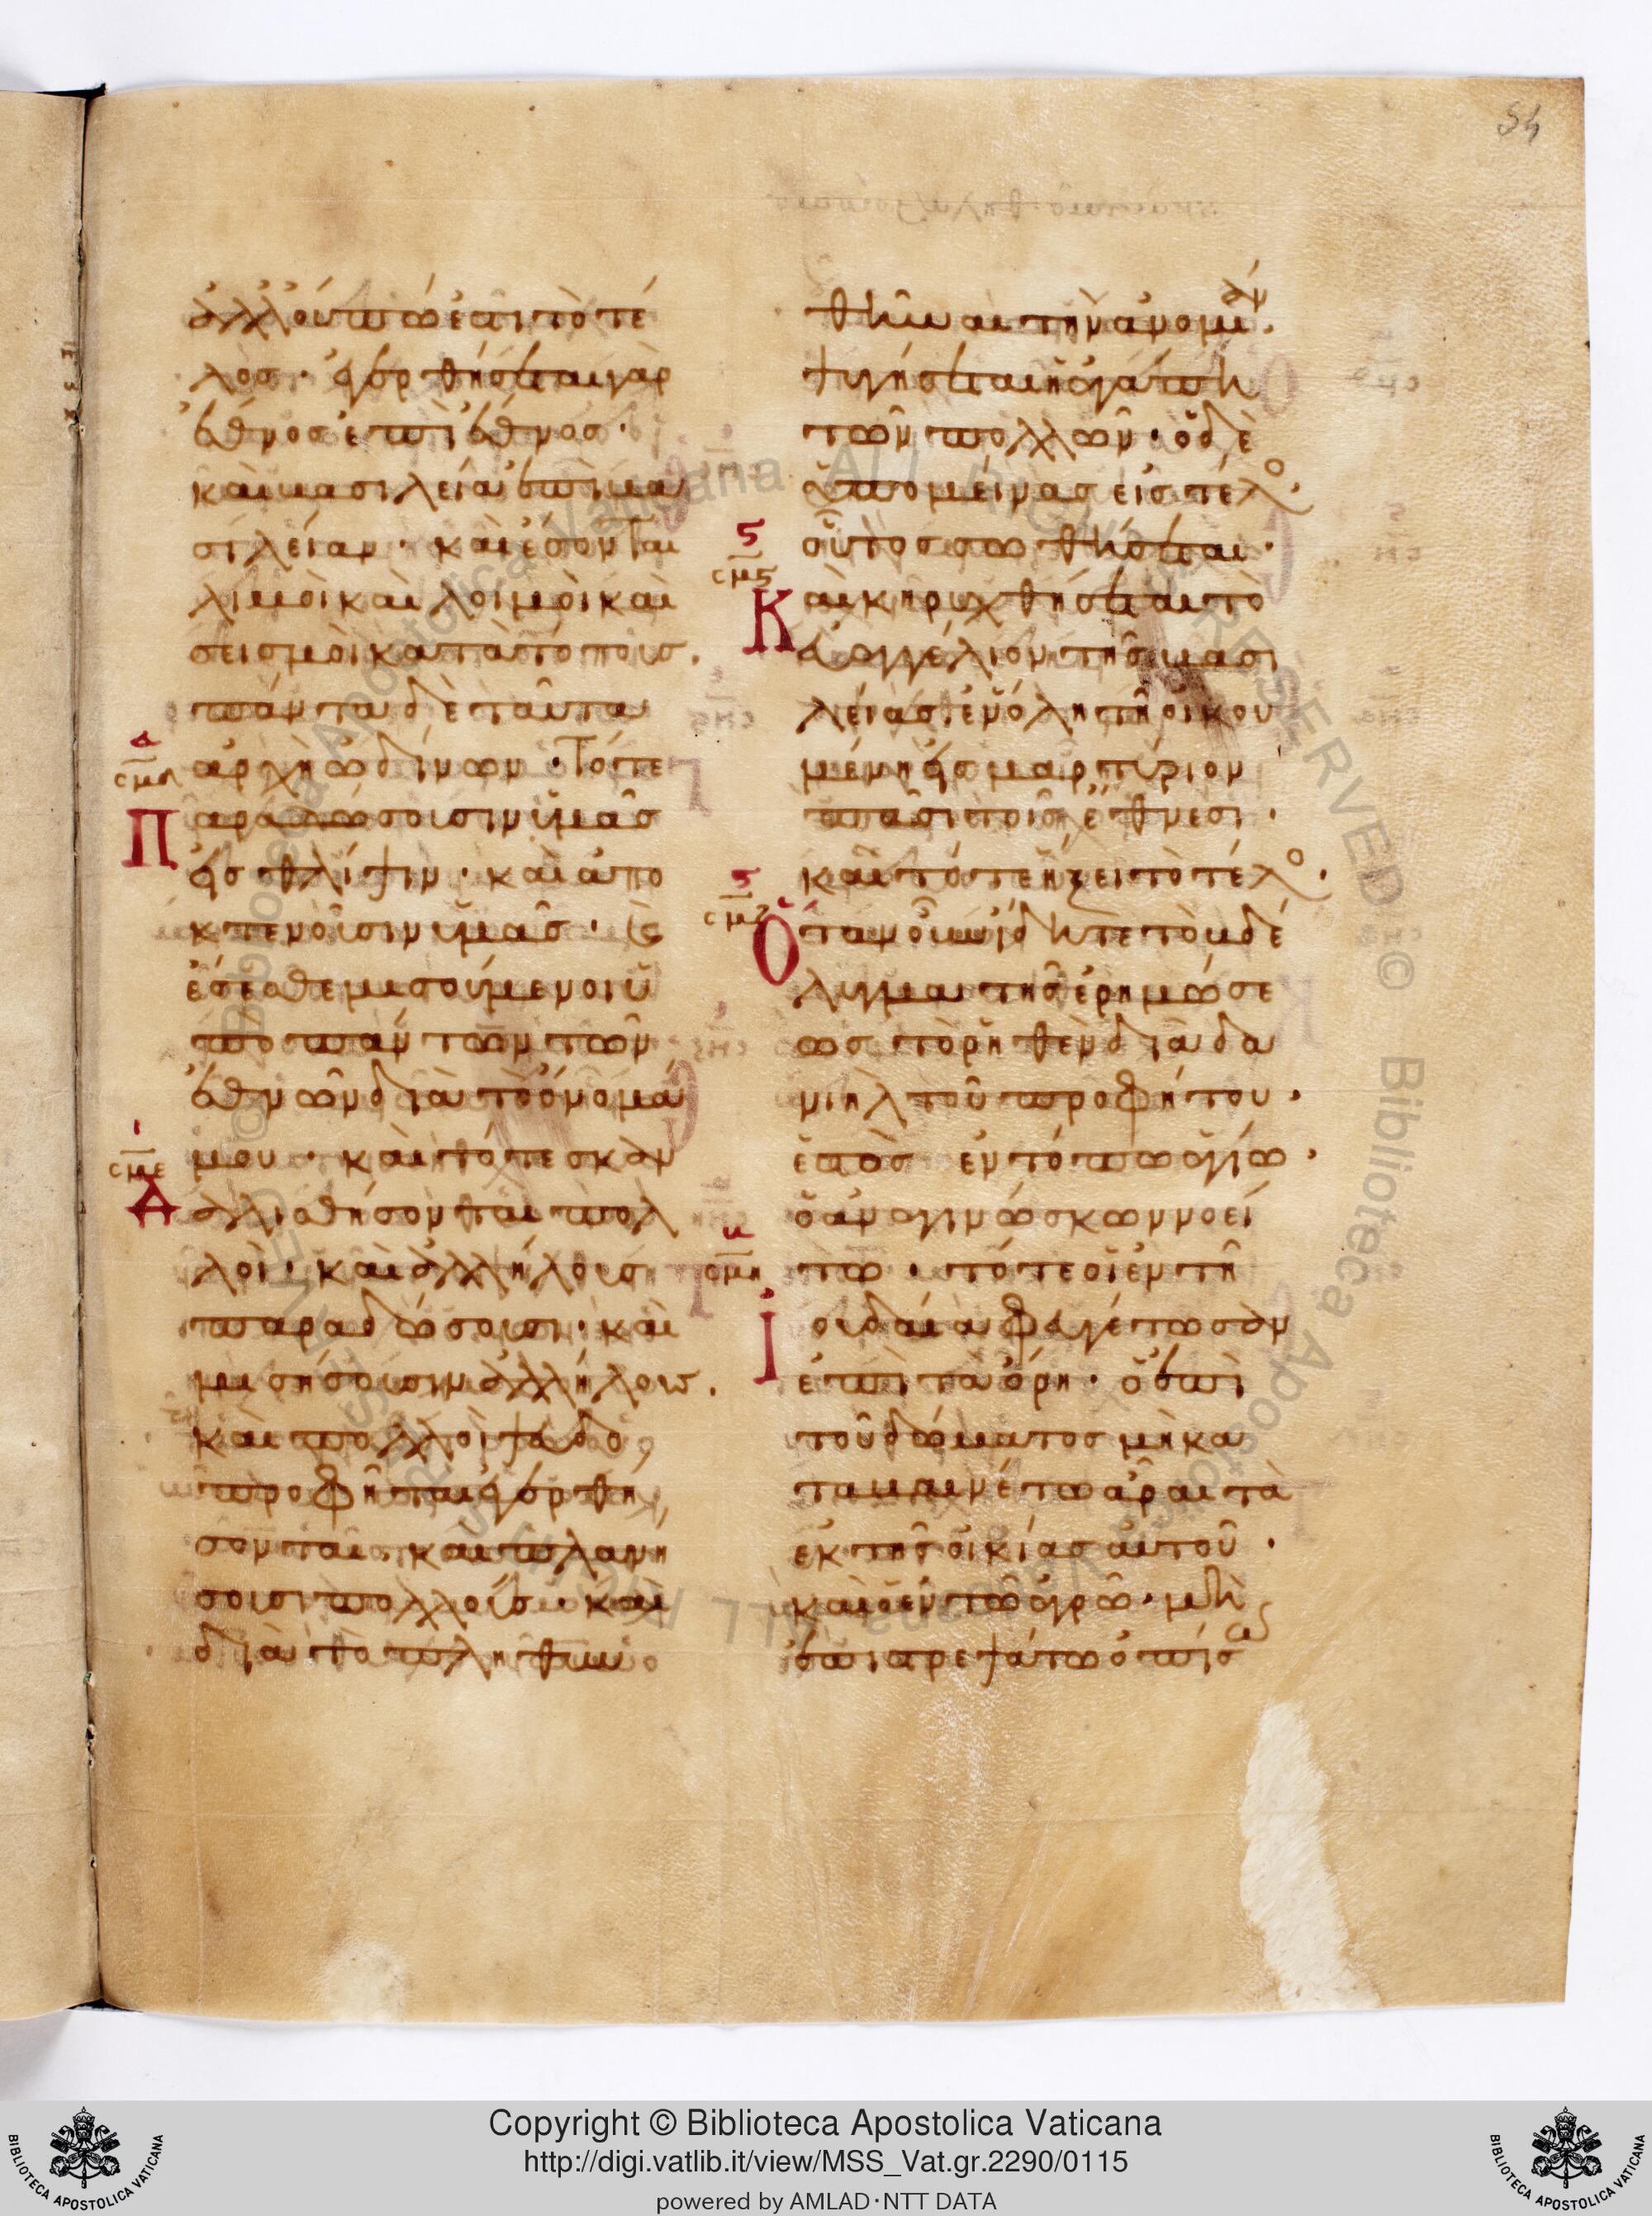 54
ἀλλ' οὔπω ἐστὶ τὸ τέ
λος· ἐγερθήσεται γὰρ
ἔθνος ἐπὶ ἔθνος·
καὶ βασιλεία ἐπὶ βα
σιλείαν· καὶ ἔσονται
λιμοὶ καὶ λοιμοὶ καὶ
σεισμοὶ κατὰ τόπους.
πάντα δὲ ταῦτα
ἀρχὴ ὠδίνων· Τότε
Παραδώσουσιν ὑμᾶς
εἰς θλίψιν· καὶ ἀπο
κτενοῦσιν ὑμᾶς· καὶ
ἔσεσθε μισούμενοι ὑ
πὸ πάντων τῶν
ἐθνῶν διὰ τὸ ὄνομά
μου· καὶ τότε σκαν
Δαλισθήσονται πολ
λοί· καὶ ἀλλήλους
παραδώσουσι· καὶ
μισήσουσιν ἀλλήλους.
καὶ πολλοὶ ψευδο
προφῆται ἐγερθή
σονται. καὶ πλανή
σουσι πολλούς· καὶ
διὰ τὸ πληθυν
θῆναι τὴν ἀνομίαν.
ψυγήσεται ἡ ἀγάπη
τῶν πολλῶν· ὁ δὲ
ὑπομείνας εἰς τέλος.
οὗτος σωθήσεται·
Καὶ κηρυχθήσεται τὸ
εὐαγγέλιον τῆς βασι
λείας ἐν ὅλη τῆ οἰκου
μένη εἰς μαρτύριον
πᾶσι τοῖς ἔθνεσι·
καὶ τότε ἥξει τὸ τέλος.
Ὅταν οὖν ἴδητε τὸ βδέ
λυγμα τῆς ἐρημώσε
ως τὸ ῥηθὲν διὰ Δα
νιὴλ τοῦ προφήτου·
ἑστὸς ἐν τόπω ἁγίω·
ὁ ἀναγινώσκων νοεί
τω· τότε οἱ ἐν τῆ
Ἰουδαία φευγέτωσαν
ἐπὶ τὰ ὄρη· ὁ ἐπὶ
τοῦ δώματος μὴ κα
ταβαινέτω ἆραι τὰ
ἐκ τῆς οἰκίας αὐτοῦ·
καὶ ὁ ἐν τῶ ἀγρῶ· μὴ
ἐπιστρεψάτω ὀπίσω
Copyright © Biblioteca Apostolica Vaticana
http://digi.vatlib.it/view/MSS_Vat.gr.2290/0115
powered by AMLAD·NTT DATA
BIBLIOTECA APOSTOLICA VATICANA
BIBLIOTECA APOSTOLICA VATICANA